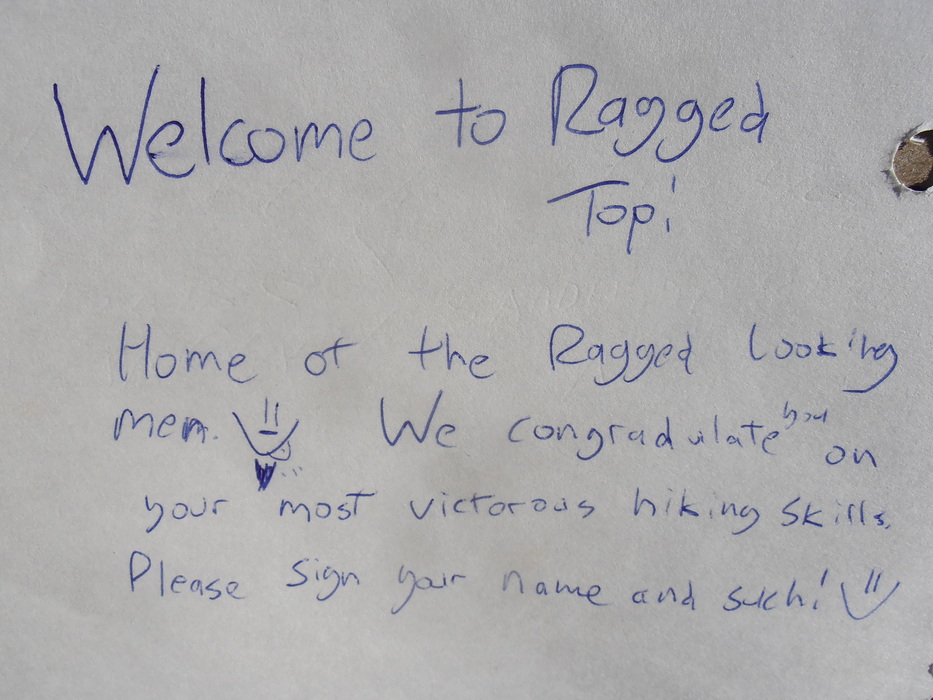 Welcome to Ragged
Top!
Home of the Ragged looking
men. We congradulate you on
your most victorous hiking skills.
Please sign your name and such!